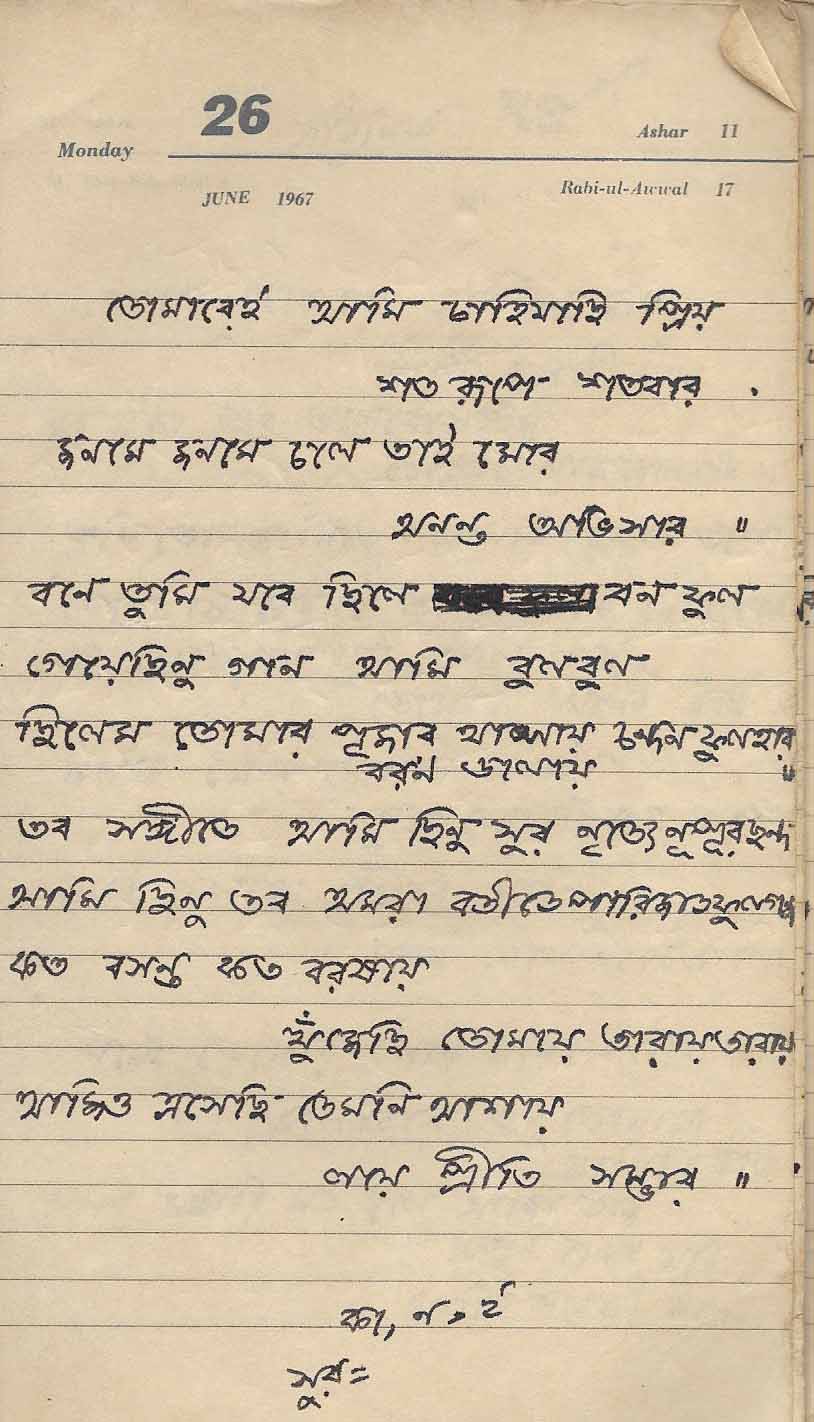 26
Monday
Ashar 11
JUNE 1967
Rabi-ul-Awwal 17
তোমারেই আমি চাহিয়াছি প্রিয়
শত রূপে শতবার .
জনমে জনমে চলে তাই মোর
অনন্ত অভিসার ॥
বনে তুমি যবে ছিলে বন ফুল
গেয়েছিনু গান আমি বুলবুল
ছিলেম তোমার পূজার থালায় চন্দন ফুলহার
বরন ডালায় ॥
তব সঙ্গীতে আমি ছিনু সুর নৃত্যে নূপূর ছন্দ
আমি ছিনু তব অমরাবতীতে পারিজাত ফুল গন্ধ
কত বসন্ত কত বরষায়
খুঁজেছি তোমায় তারায় তারায়
আজিও এসেছি তেমনি আশায়
লয়ে প্রীতি সম্ভার ॥
কা, ন, ই
সুর=